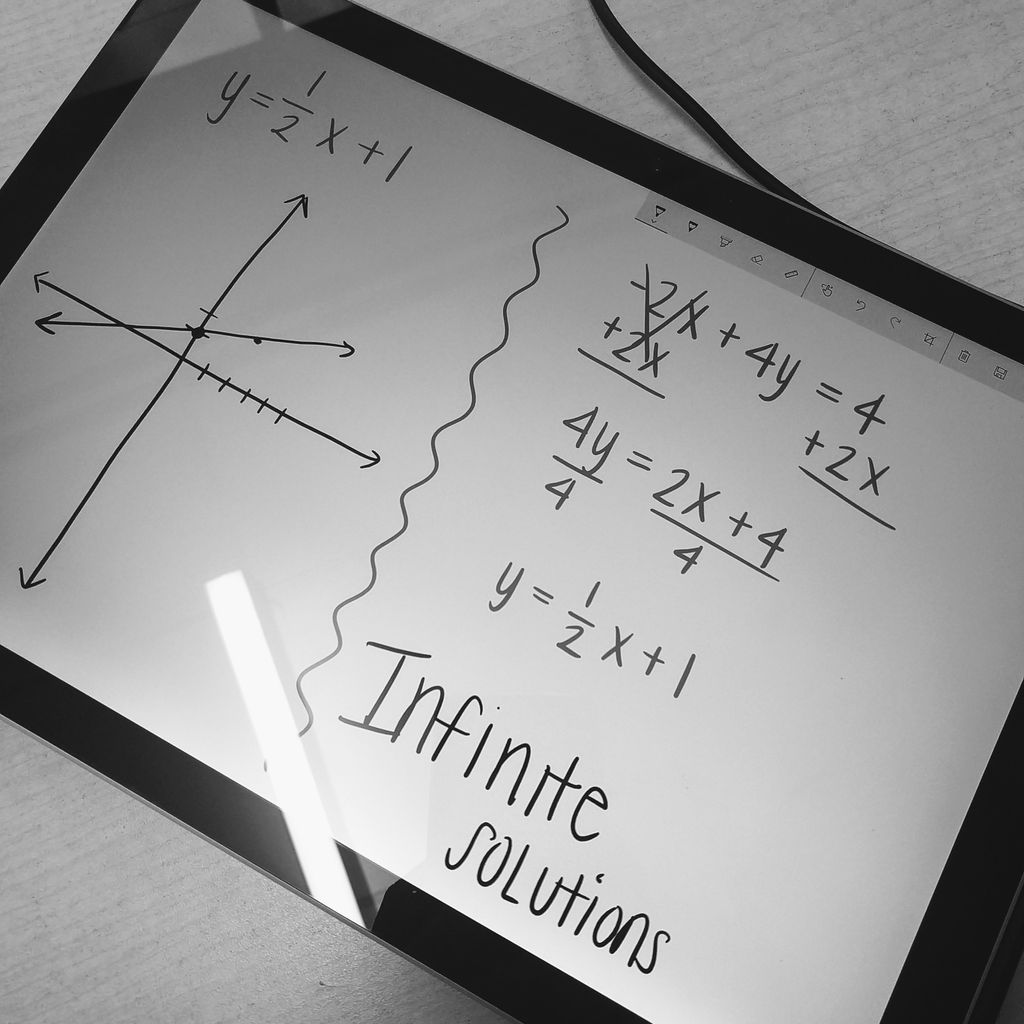 y = 1/2 x + 1
-2x + 4y = 4
+2x +2x
4y/4 = 2x + 4/4
y = 1/2 x + 1
Infinite
solutions